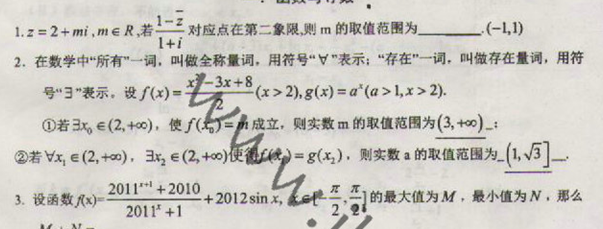 1. z = 2 + mi , m ∈ R , 若 (1 - z̄)/(1 + i) 对应点在第二象限,则 m 的取值范围为________.(-1,1)
2. 在数学中“所有”一词，叫做全称量词，用符号“∀”表示；“存在”一词，叫做存在量词，用符
号“∃”表示。设 f(x) = (x² - 3x + 8)/2 (x > 2), g(x) = aˣ (a > 1, x > 2).
①若∃x₀ ∈ (2,+∞)，使 f(x₀) = m 成立，则实数 m 的取值范围为(3,+∞)_;
②若∀x₁ ∈ (2,+∞)，∃x₂ ∈ (2,+∞)使得f(x₁) = g(x₂)，则实数 a 的取值范围为_(1,√3]__.
3. 设函数 f(x)= (2011ˣ⁺¹ + 2010)/(2011ˣ + 1) + 2012 sin x, x ∈ [-π/2, π/2] 的最大值为 M，最小值为 N，那么